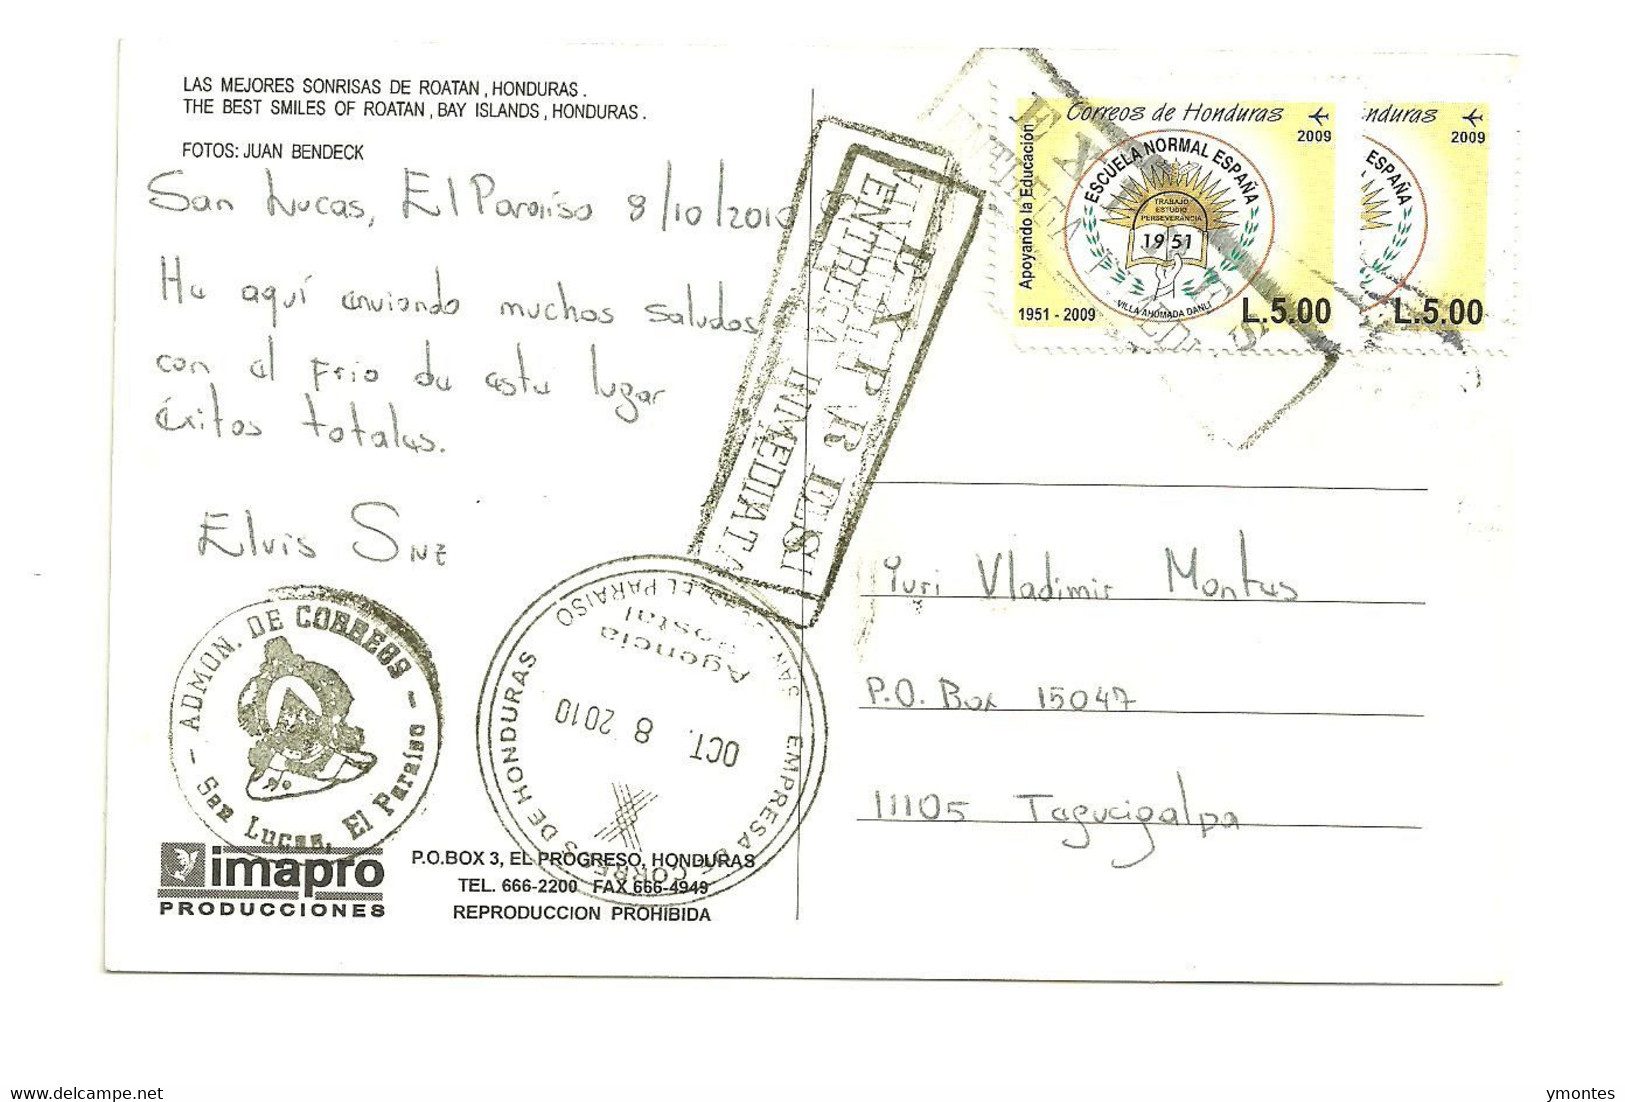 LAS MEJORES SONRISAS DE ROATAN, HONDURAS.
THE BEST SMILES OF ROATAN, BAY ISLANDS, HONDURAS.
FOTOS: JUAN BENDECK
San Lucas, El Paraiso 8/10/2010
He aquí enviando muchos saludos
con el frio de este lugar
éxitos totales.
Elvis Snz
ADMON. DE CORREOS
San Lucas, El Paraíso
imapro
PRODUCCIONES
P.O.BOX 3, EL PROGRESO, HONDURAS
TEL. 666-2200 FAX 666-4949
REPRODUCCION PROHIBIDA
EMPRESA DE CORREOS DE HONDURAS
SAN LUCAS EL PARAISO
Agencia
Postal
OCT. 8 2010
EXPRESS
ENTREGA INMEDIATA
Correos de Honduras
2009
Apoyando la Educación
ESCUELA NORMAL ESPAÑA
TRABAJO
ESTUDIO
PERSEVERANCIA
1951
VILLA AHUMADA DANLI
1951 - 2009
L.5.00
nduras
2009
ESPAÑA
L.5.00
Yuri Vladimir Montes
P.O. Box 15047
11105 Tegucigalpa
ymontes